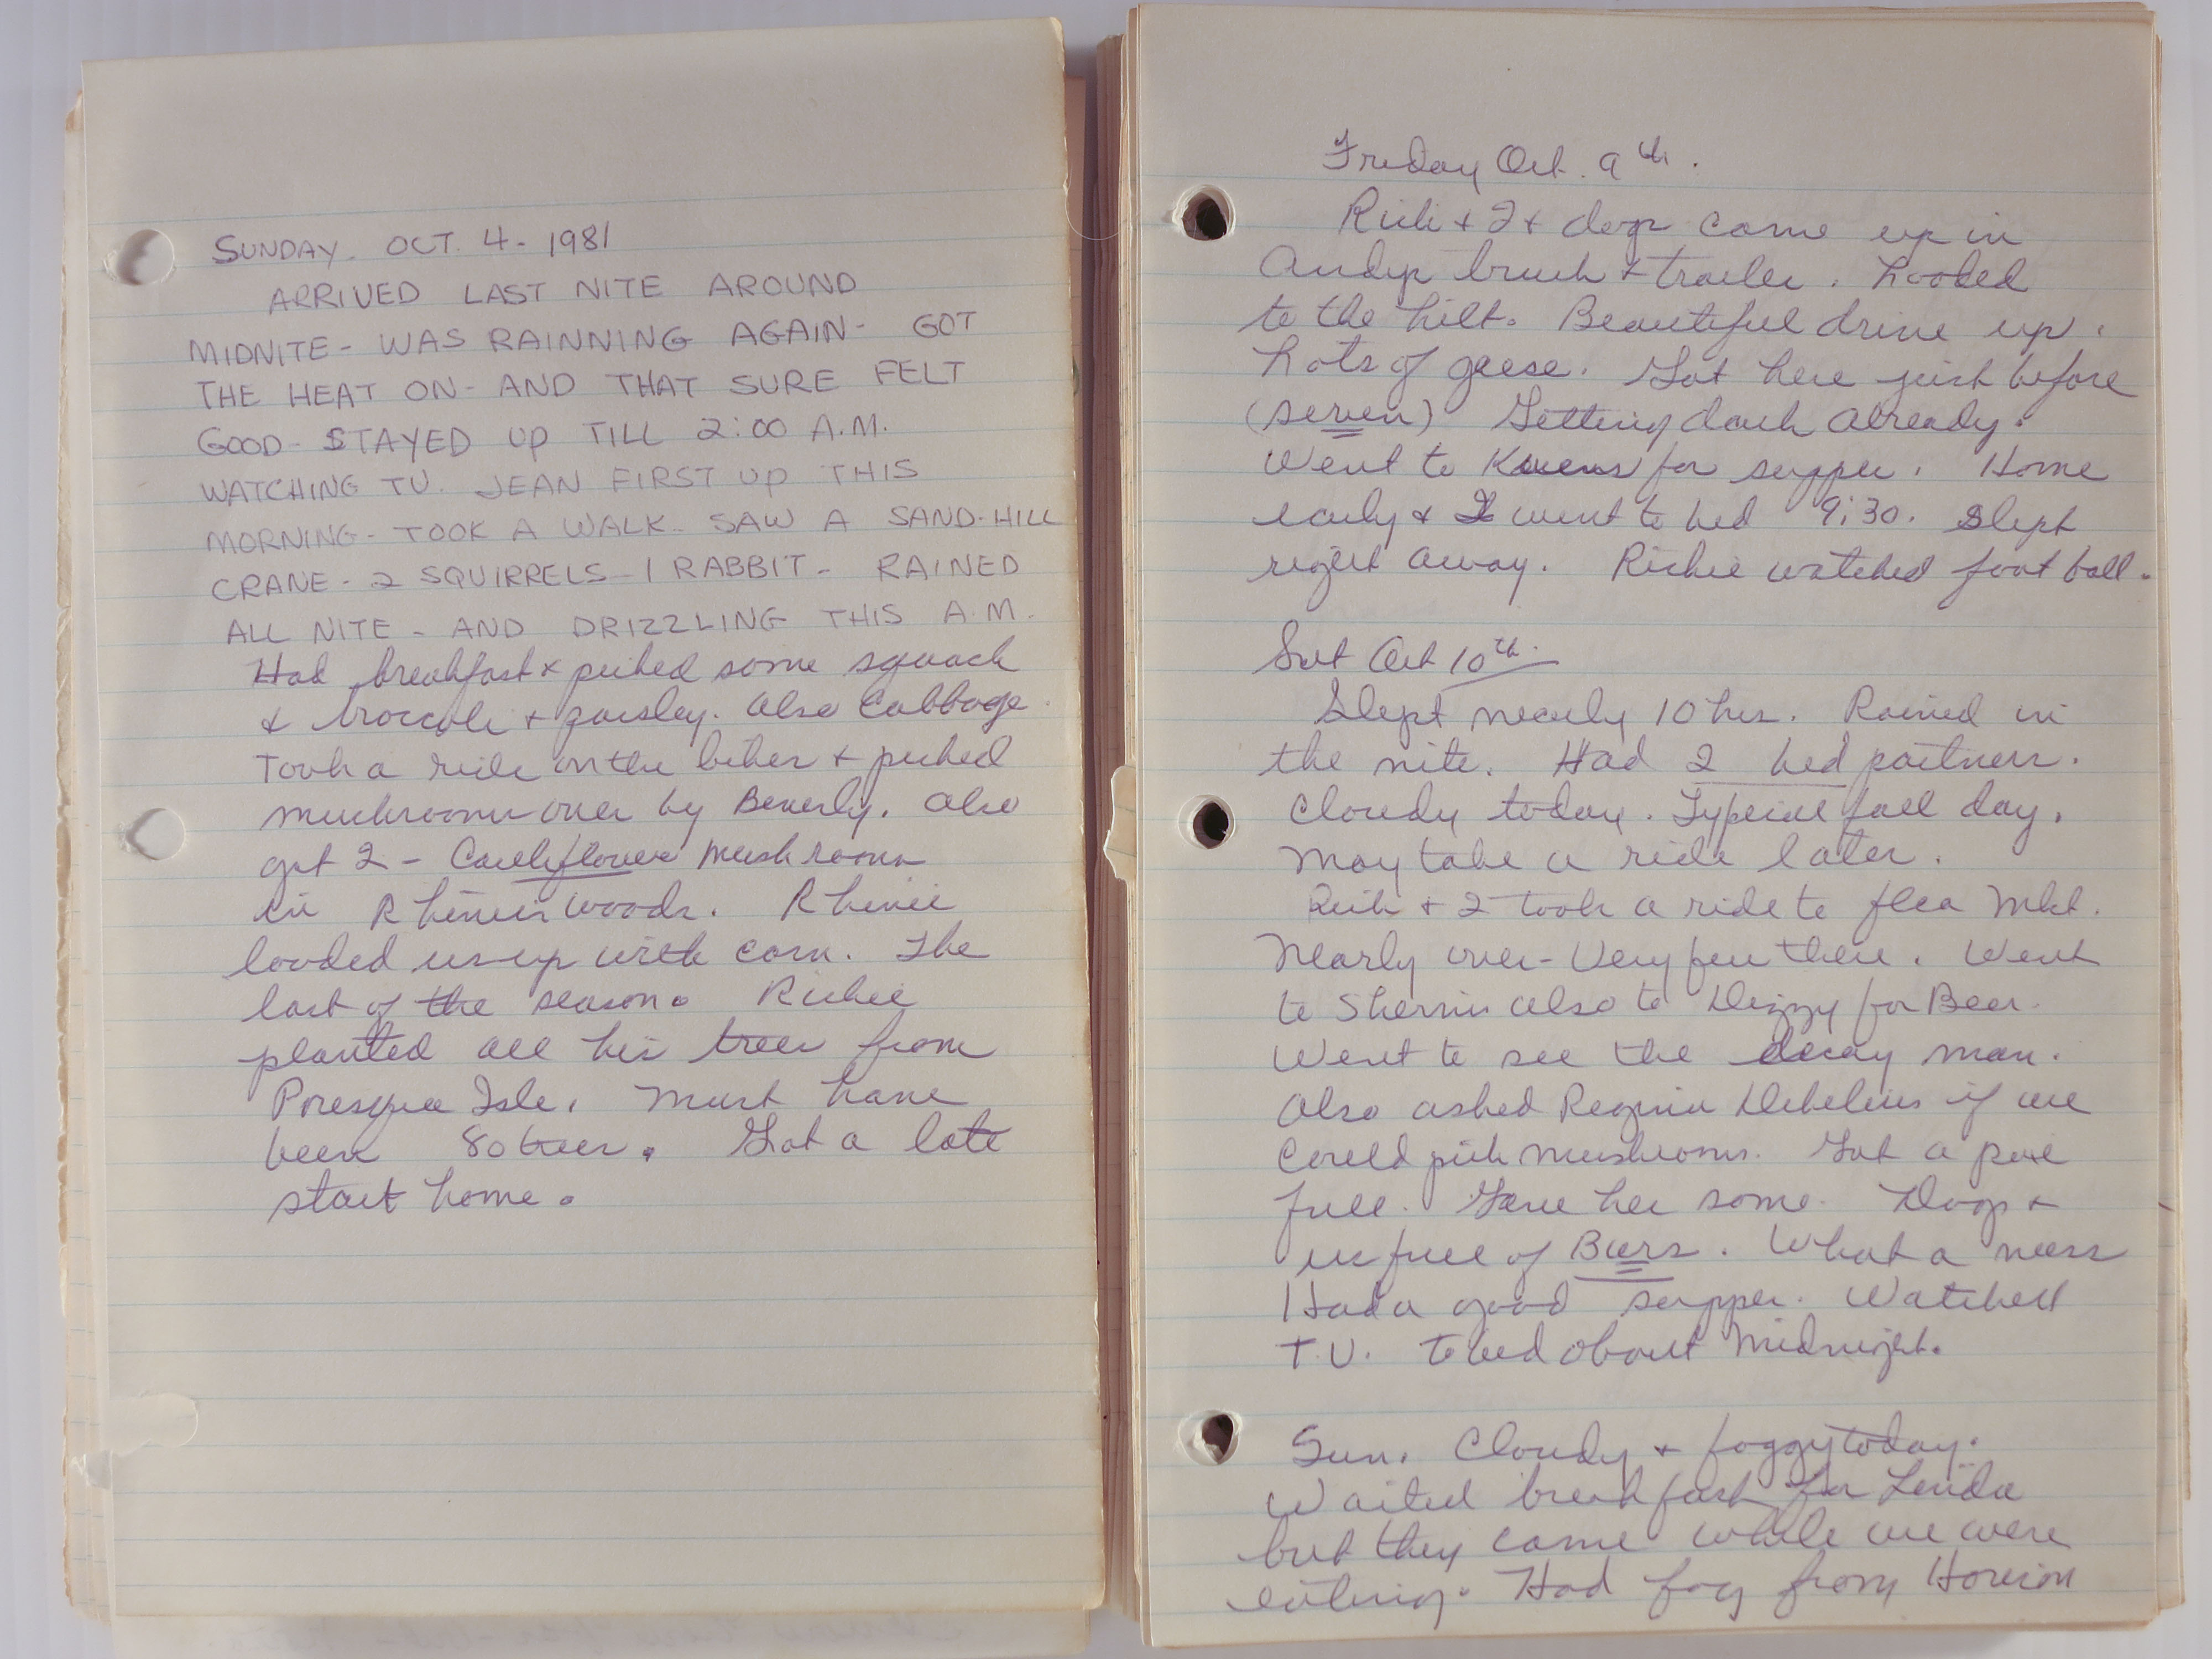 SUNDAY. OCT. 4 - 1981
ARRIVED LAST NITE AROUND
MIDNITE - WAS RAINNING AGAIN - GOT
THE HEAT ON - AND THAT SURE FELT
GOOD - STAYED UP TILL 2:00 A.M.
WATCHING TV. JEAN FIRST UP THIS
MORNING - TOOK A WALK - SAW A SAND-HILL
CRANE - 2 SQUIRRELS - 1 RABBIT - RAINED
ALL NITE - AND DRIZZLING THIS A.M.
Had breakfast & picked some squash
& broccoli + parsley. Also Cabbage.
Took a ride on the bikes + picked
mushrooms over by Beverly. Also
got 2 - Cauliflower mushrooms
in Rhinies woods. Rhinie
loaded us up with corn. The
last of the season. Richie
planted all his trees from
Presque Isle. Must have
been 80 trees. Got a late
start home.
Friday Oct. 9th.
Rich + I + dogs came up in
Andys truck + trailer. Loaded
to the hilt. Beautiful drive up.
Lots of geese. Got here just before
(seven) Getting dark already.
Went to for supper. Home
early & I went to bed 9:30. Slept
right away. Richie watched foot ball.
Sat Oct 10th.
Slept nearly 10 hrs. Rained in
the nite. Had 2 bed partners.
Cloudy today. Typical fall day.
May take a ride later.
Rich + I took a ride to flea Mkt.
Nearly over - Very few there. Went
to also to Dizzy for Beer.
Went to see the man.
Also asked Regina if we
could pick mushrooms. Got a pail
full. Gave her some. Dogs +
us full of Burs. What a mess
Had a good supper. Watched
T.V. to bed about Midnight.
Sun. Cloudy + foggy today.
Waited breakfast for Linda
but they came while we were
eating. Had fog from Horicon